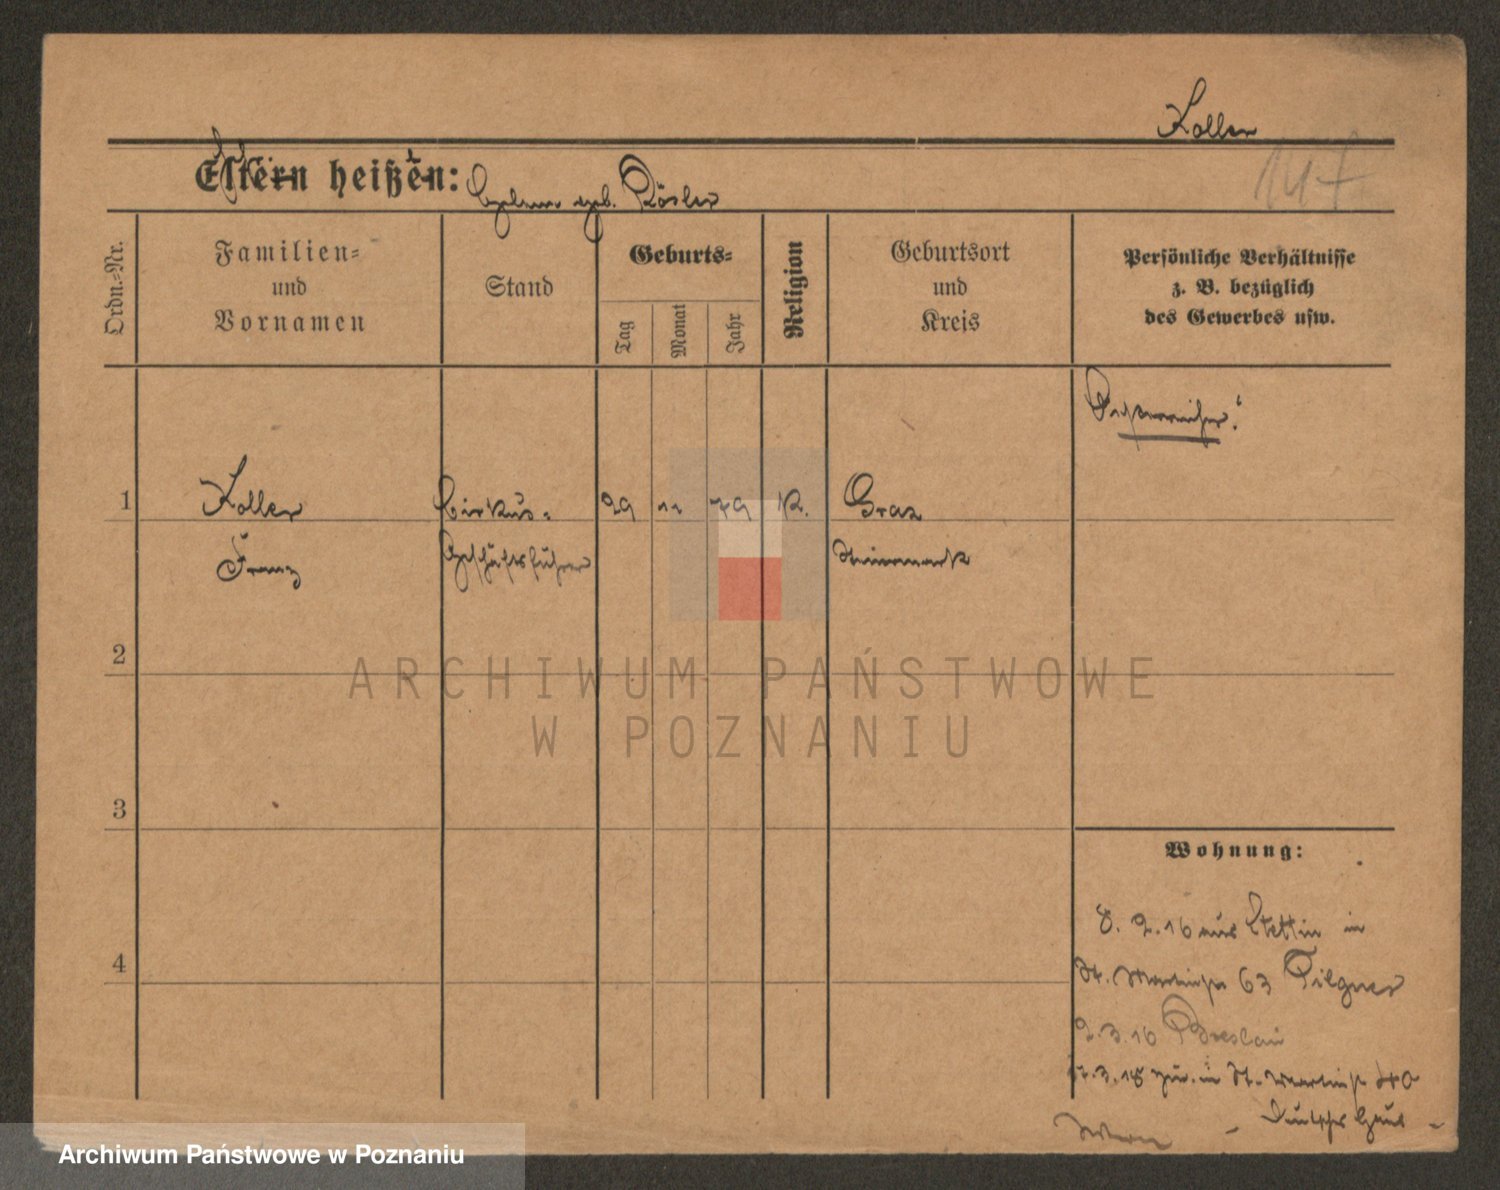 Koller
147
Eltern heißen: geb. Rösler
Ordn.-Nr.
Familien-
und
Vornamen
Stand
Geburts-
Tag
Monat
Jahr
Religion
Geburtsort
und
Kreis
Persönliche Verhältnisse
z. B. bezüglich
des Gewerbes usw.
Oesterreicher!
1
Koller
Cirkus-
29
11
79
K.
Graz
Franz
Geschäftsführer
Steiermark
2
ARCHIWUM PAŃSTWOWE
W POZNANIU
3
Wohnung:
8. 2. 16 aus Stettin in
St. Martinstr 63 Pilgner
4
2. 3. 16 Breslau
3. 18 zur. in St. Martinstr 40
- Deutsches Haus -
Archiwum Państwowe w Poznaniu